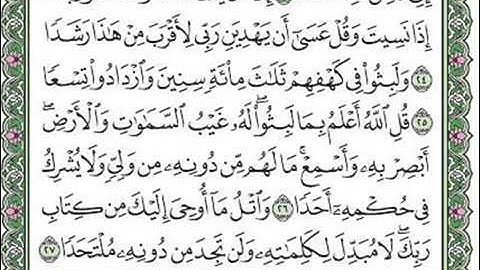 إِذَا نَسِيتَ وَقُلْ عَسَىٰٓ أَن يَهْدِيَنِ رَبِّى لِأَقْرَبَ مِنْ هَٰذَا رَشَدًا
٢٤ وَلَبِثُوا۟ فِى كَهْفِهِمْ ثَلَٰثَ مِا۟ئَةٍ سِنِينَ وَٱزْدَادُوا۟ تِسْعًا
٢٥ قُلِ ٱللَّهُ أَعْلَمُ بِمَا لَبِثُوا۟ ۖ لَهُۥ غَيْبُ ٱلسَّمَٰوَٰتِ وَٱلْأَرْضِ ۖ
أَبْصِرْ بِهِۦ وَأَسْمِعْ ۚ مَا لَهُم مِّن دُونِهِۦ مِن وَلِىٍّ وَلَا يُشْرِكُ
فِى حُكْمِهِۦٓ أَحَدًا ٢٦ وَٱتْلُ مَآ أُوحِىَ إِلَيْكَ مِن كِتَابِ
رَبِّكَ ۖ لَا مُبَدِّلَ لِكَلِمَٰتِهِۦ وَلَن تَجِدَ مِن دُونِهِۦ مُلْتَحَدًا ٢٧